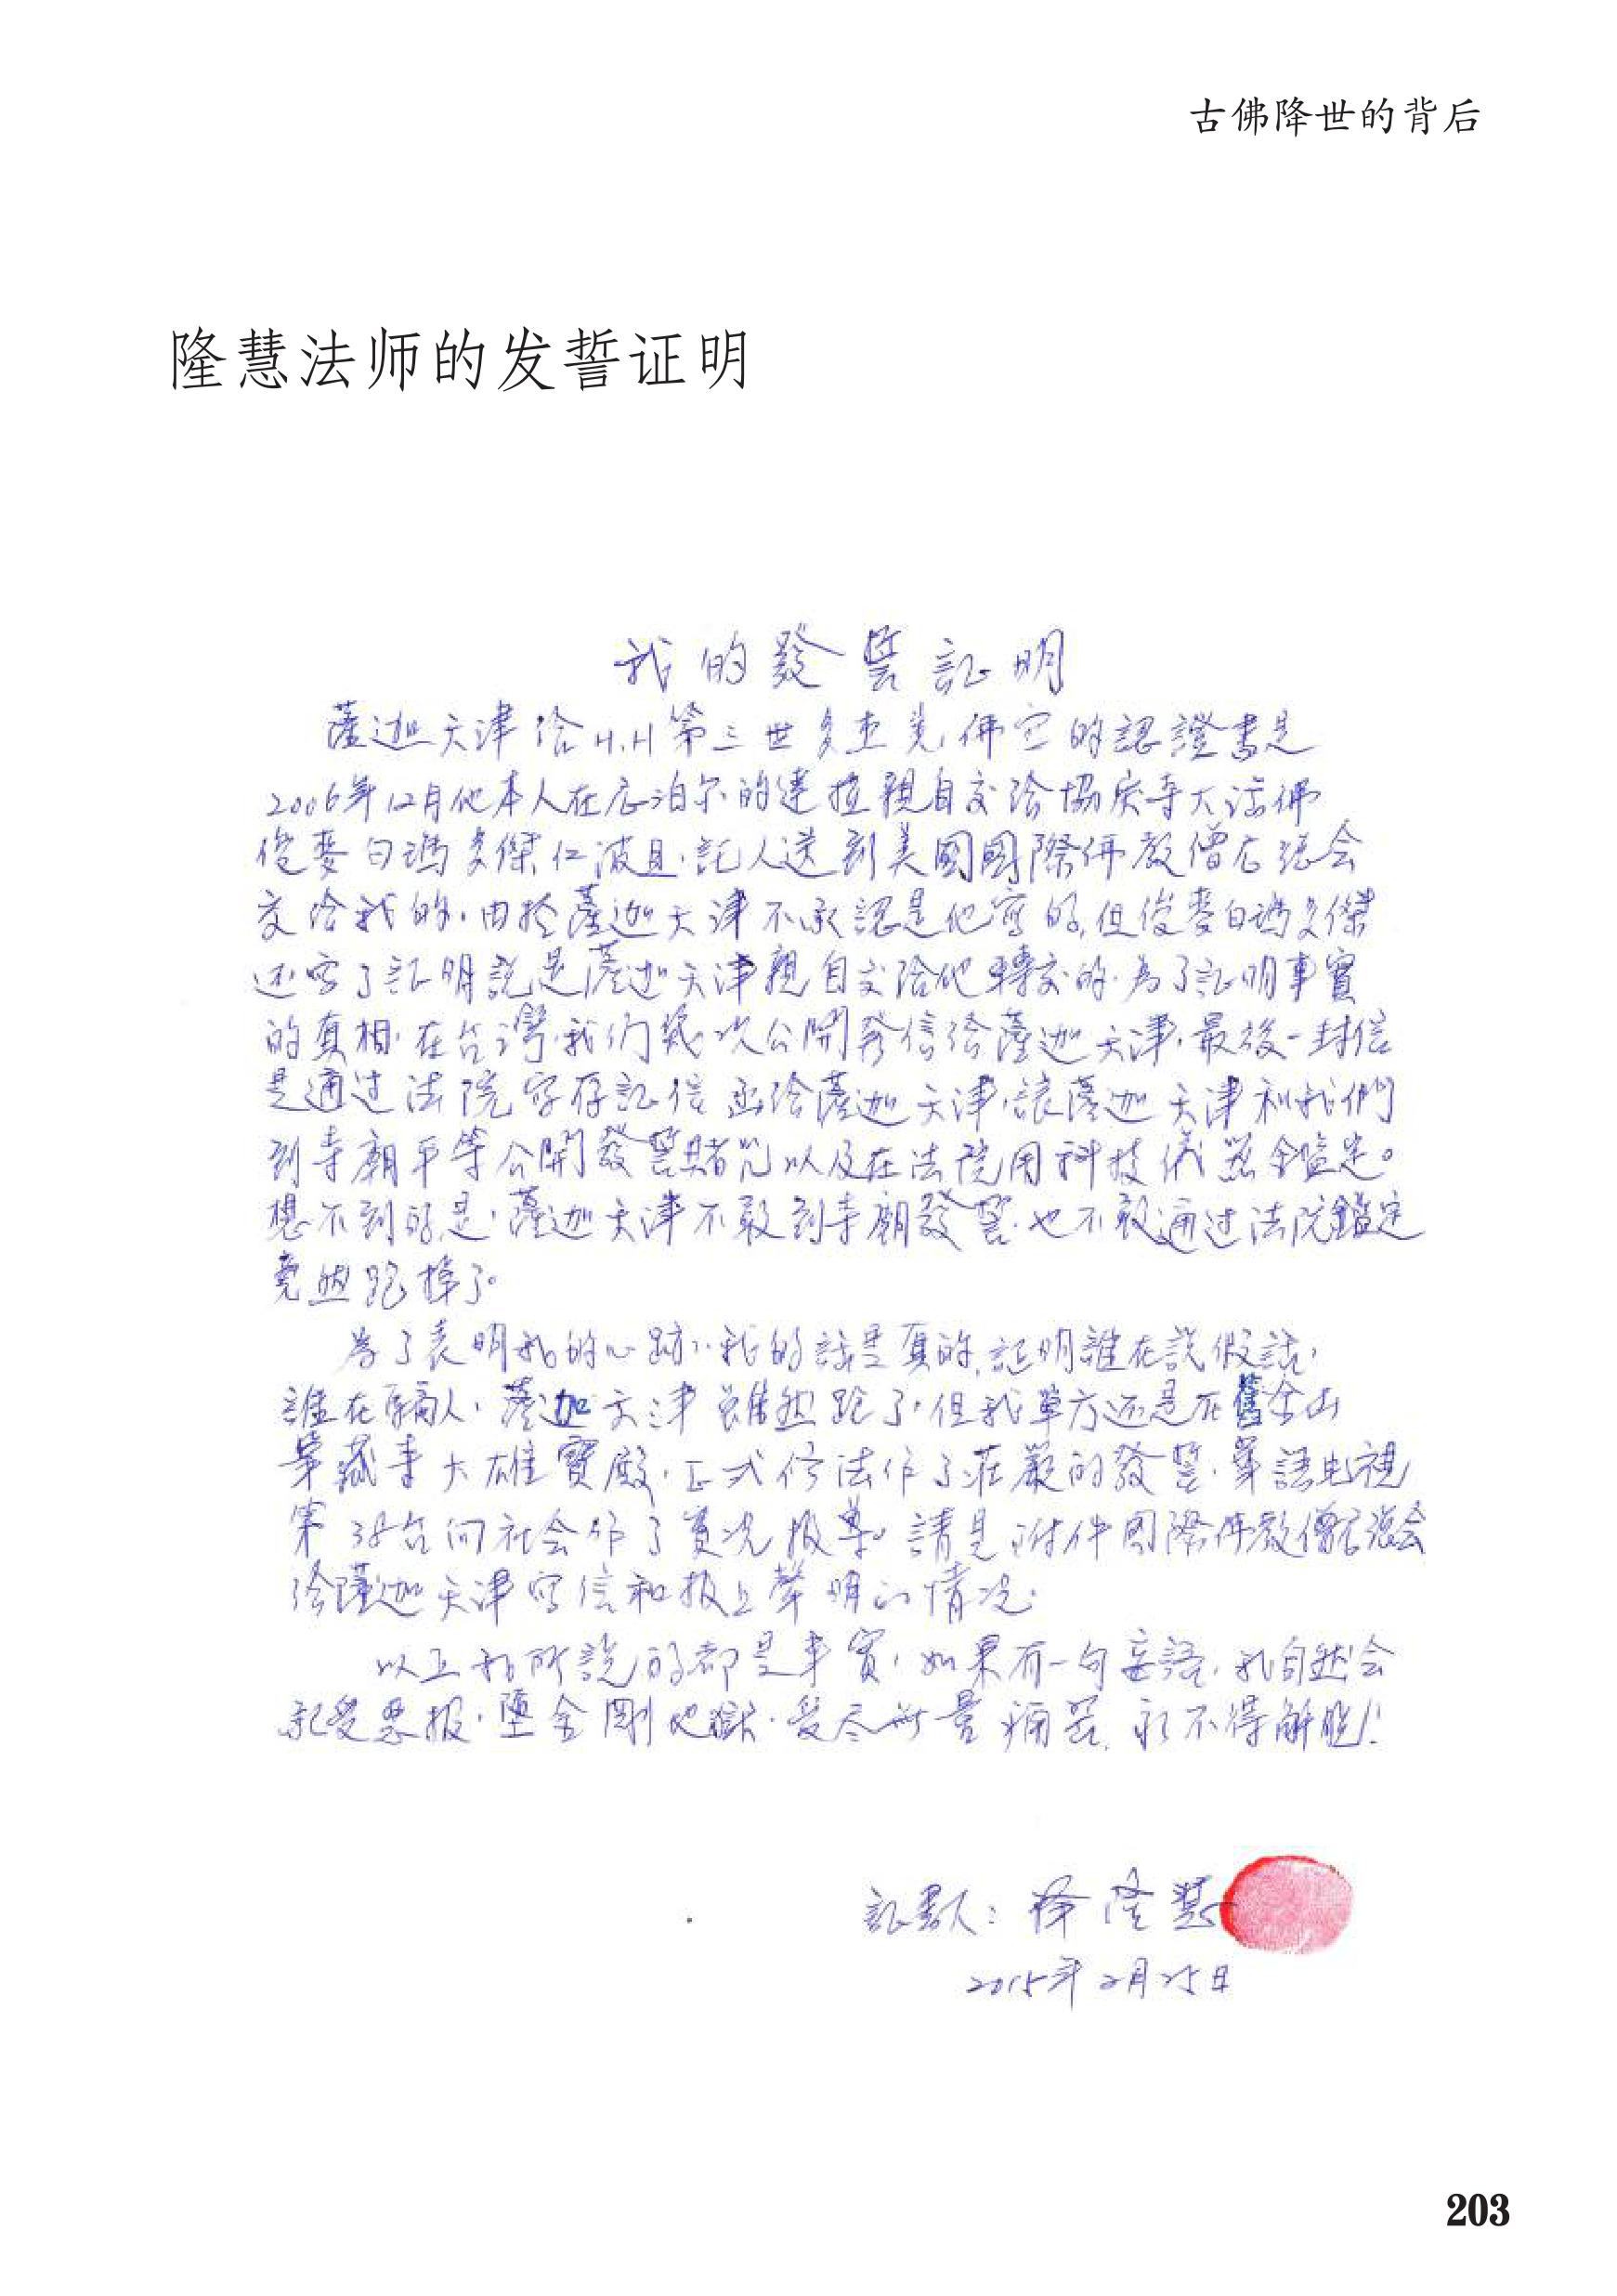 古佛降世的背后
隆慧法师的发誓证明
我的發誓証明
薩迦天津给H.H第三世多杰羌佛它的認證書是
2006年12月他本人在尼泊尔的達拉親自交给協庆寺大活佛
俊麥白瑪多傑仁波且,託人送到美國國際佛教僧尼總会
交给我的,由於薩迦天津不承認是他寫的,但俊麥白瑪多傑
还寫了証明説是薩迦天津親自交给他轉交的.为了証明事實
的真相,在台灣,我们幾次公開發信给薩迦天津,最後一封信
是通过法院寄存証信函给薩迦天津,讓薩迦天津和我們
到寺廟平等公開發誓賭咒以及在法院用科技儀器鑑定。
想不到的是,薩迦天津不敢到寺廟發誓,也不敢通过法院鑑定
竟然跑掉了。
为了表明我的心跡,我的話是真的,証明誰在説假話,
誰在騙人,薩迦天津雖然跑了,但我單方还是在舊金山
華藏寺大雄寶殿,正式修法作了莊嚴的發誓,華語电視
第38台向社会作了實况报導。請見附件國際佛教僧尼總会
给薩迦天津寫信和报上聲明的情况.
以上我所説的都是事實,如果有一句妄語,我自然会
承受惡报,墮金剛地獄,受尽無量痛苦,永不得解脱!
証書人:释隆慧
2015年2月25日
203